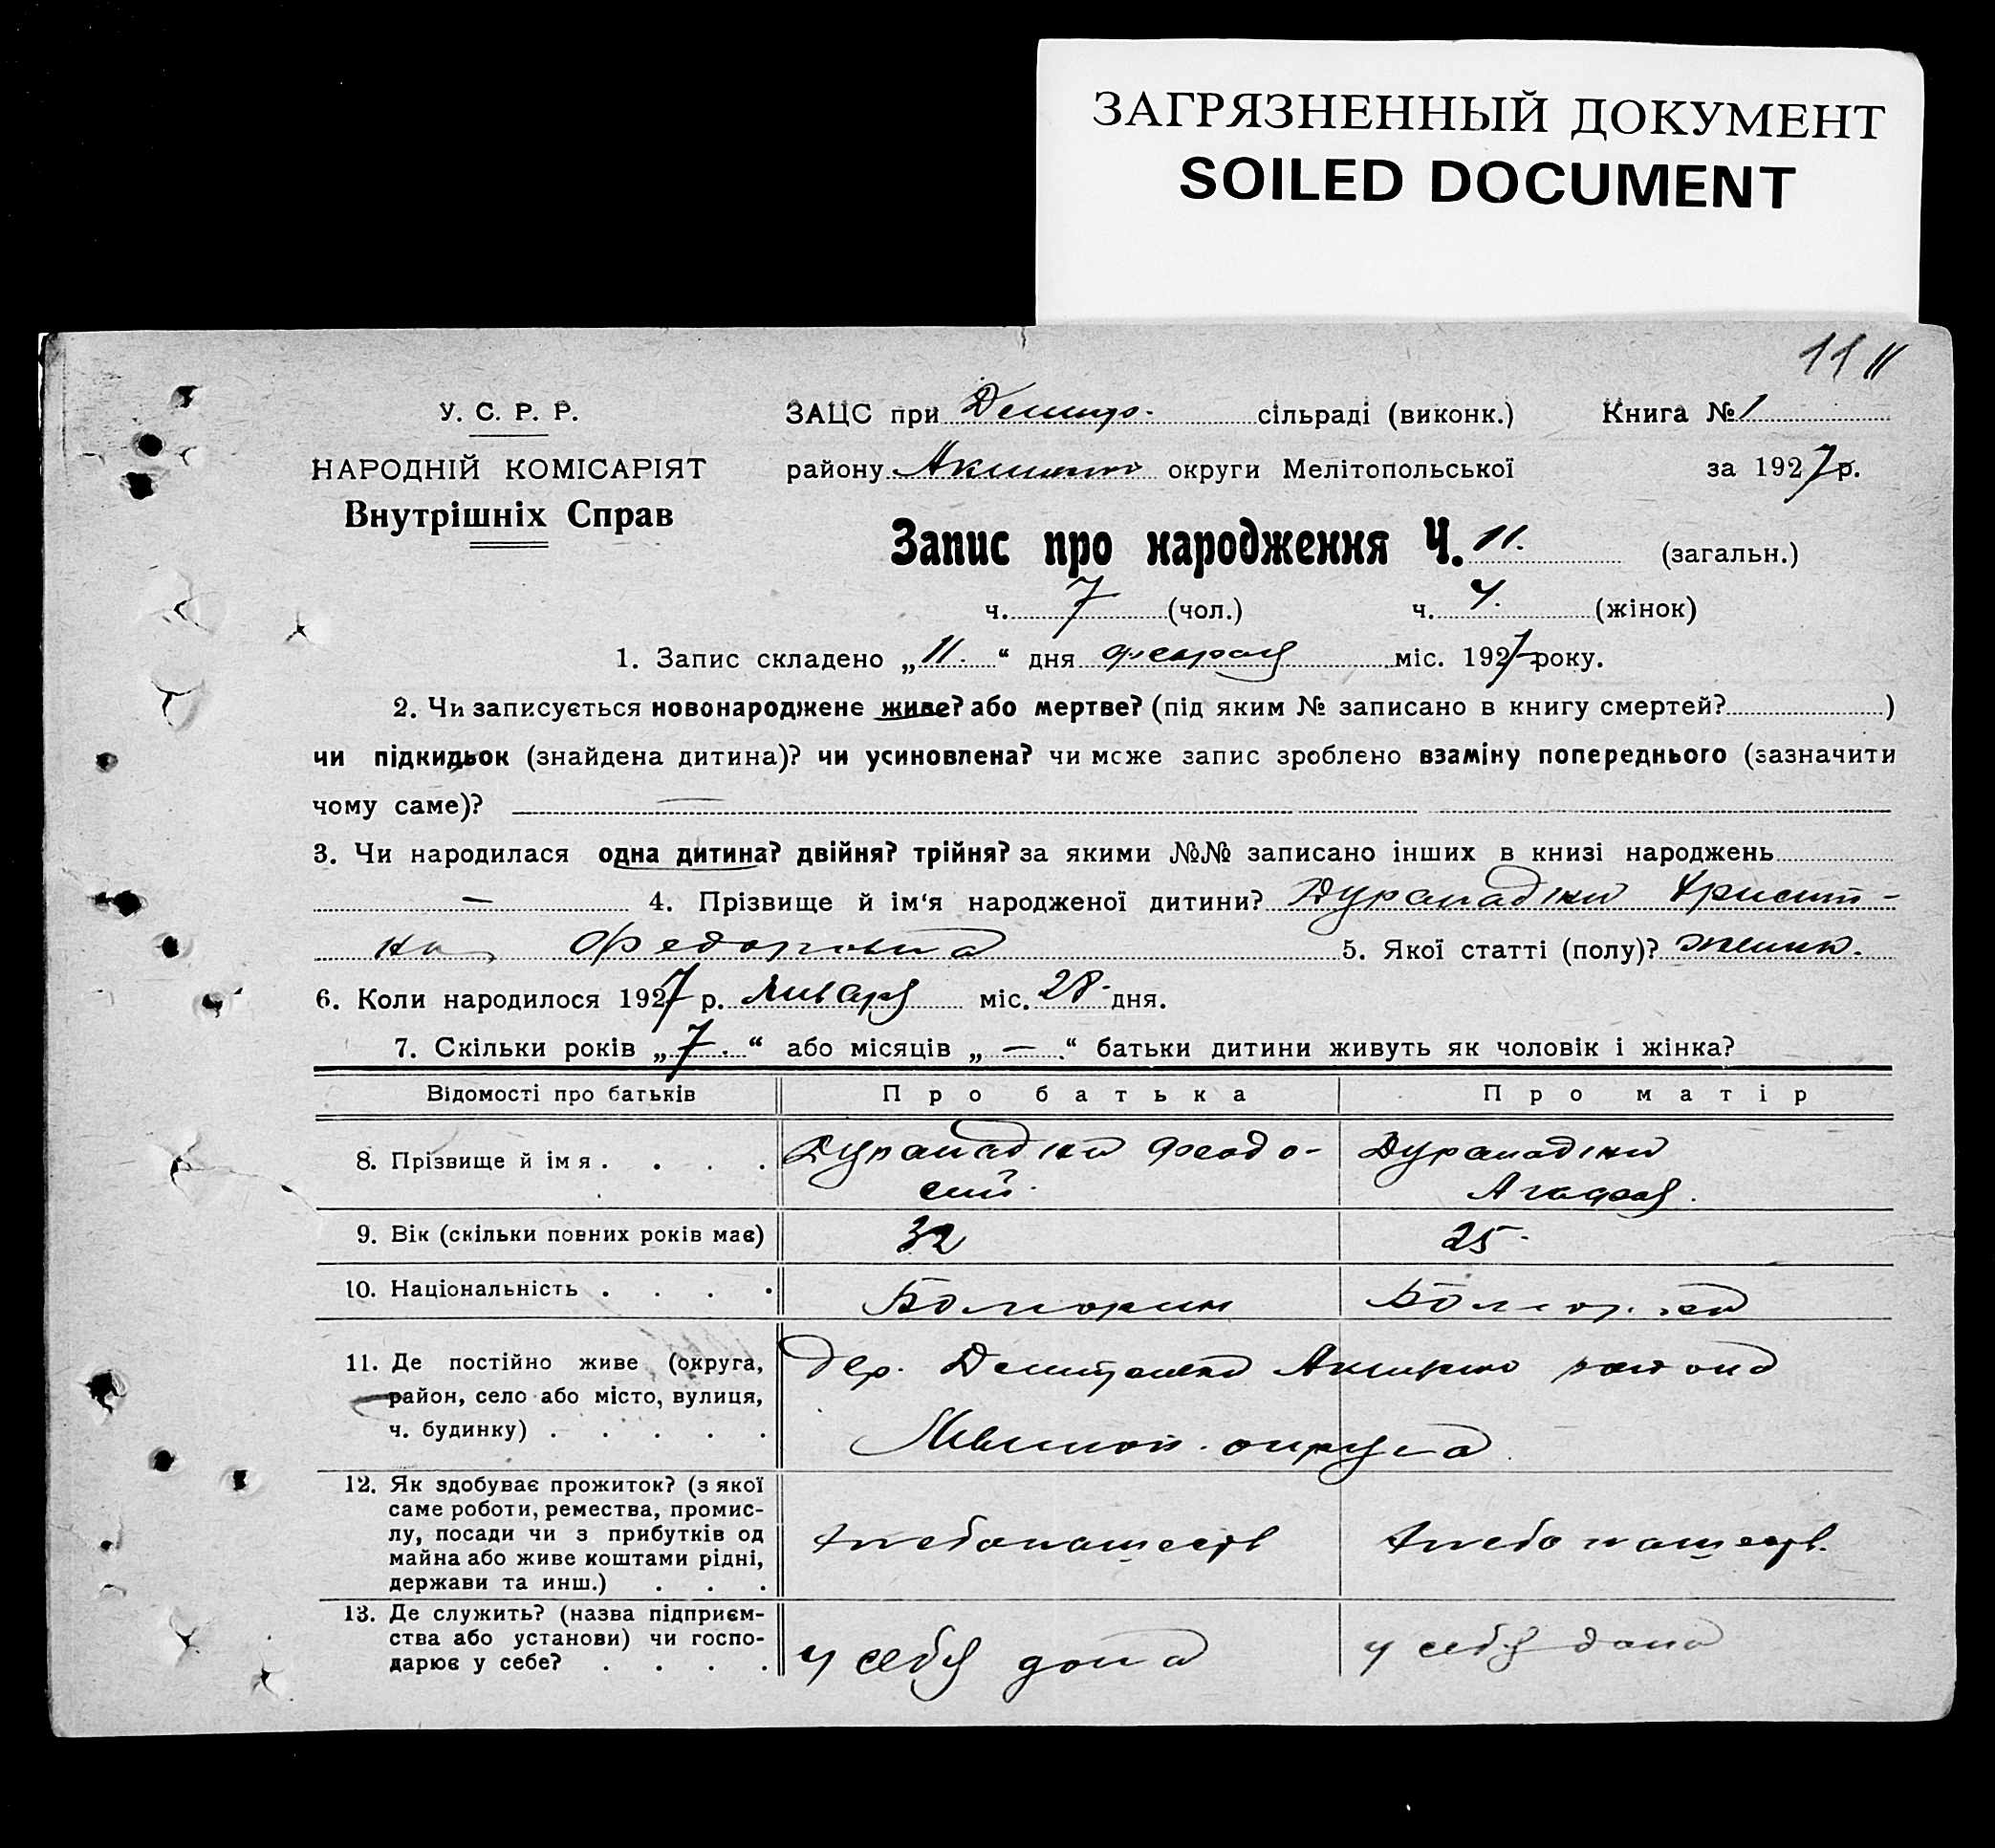 ЗАГРЯЗНЕННЫЙ ДОКУМЕНТ
SOILED DOCUMENT
11 11
У. С. Р. Р.
НАРОДНІЙ КОМІСАРІЯТ
Внутрішніх Справ
ЗАЦС при сільраді (виконк.) Книга № 1
району округи Мелітопольської за 1927 р.
Запис про народження Ч. 11. (загальн.)
ч. 7 (чол.) ч. 4. (жінок)
1. Запис складено „ 11. “ дня февраля міс. 1927 року.
2. Чи записується новонароджене живе? або мертве? (під яким № записано в книгу смертей? )
чи підкидьок (знайдена дитина)? чи усиновлена? чи може запис зроблено взаміну попереднього (зазначити
чому саме)? —
3. Чи народилася одна дитина? двійня? трійня? за якими №№ записано інших в книзі народжень
— 4. Прізвище й ім‘я народженої дитини? Христи-
на 5. Якої статті (полу)? женск.
6. Коли народилося 1927 р. Января міс. 28 дня.
7. Скільки років „ 7. “ або місяців „ — “ батьки дитини живуть як чоловік і жінка?
Відомості про батьків Про батька Про матір
8. Прізвище й ім я . . . . Феодо- 
сий Агафия.
9. Вік (скільки повних років має) 32 25
10. Національність . . . . Болгарин
11. Де постійно живе (округа, дер. района
район, село або місто, вулиця,
ч. будинку) . . . . . округа
12. Як здобуває прожиток? (з якої
саме роботи, ремества, промис-
лу, посади чи з прибутків од
майна або живе коштами рідні,
держави та инш.) . . .
13. Де служить? (назва підприєм-
ства або установи) чи госпо- у себя дома у себя дома
дарює у себе? . . . .